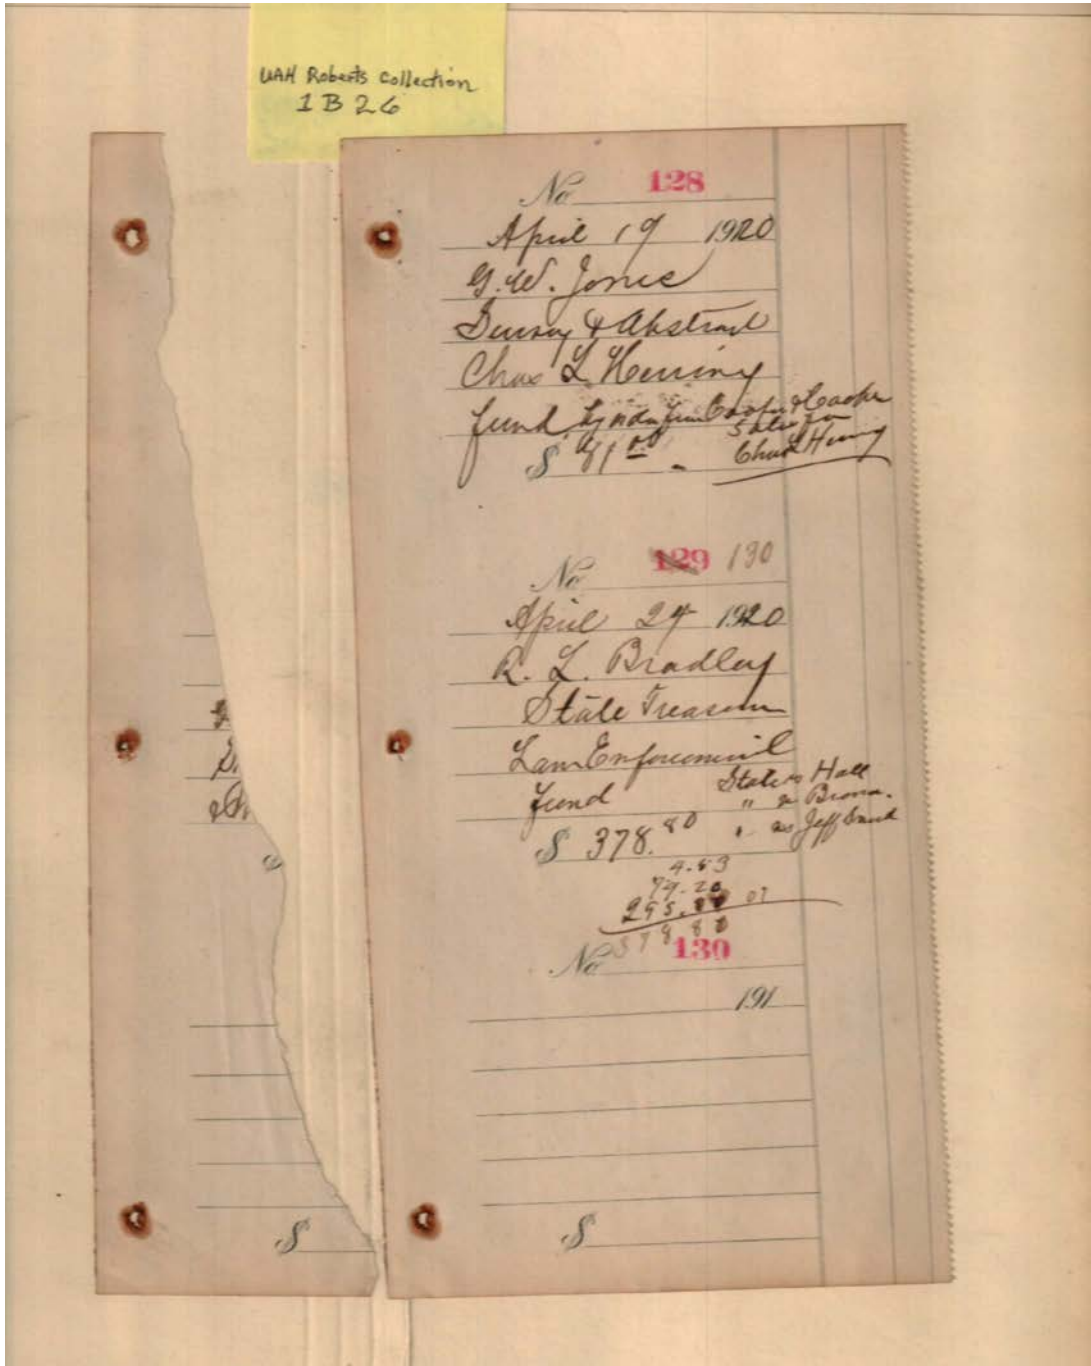 UAH Roberts Collection
1 B 26
No 128
April 19 1920
G. W. Jones
Survey & Abstract
Chas L Herring
fund Cooper & Cooke
$ 81 00 Chas L Herring
No 129 130
April 24 1920
R. L. Bradley
State Treasurer
Law Enforcement
fund State vs Hall
" vs
$ 378.80 " vs Jeff
4.53
79.20
295. 07
378 80
No 130
191
$
$